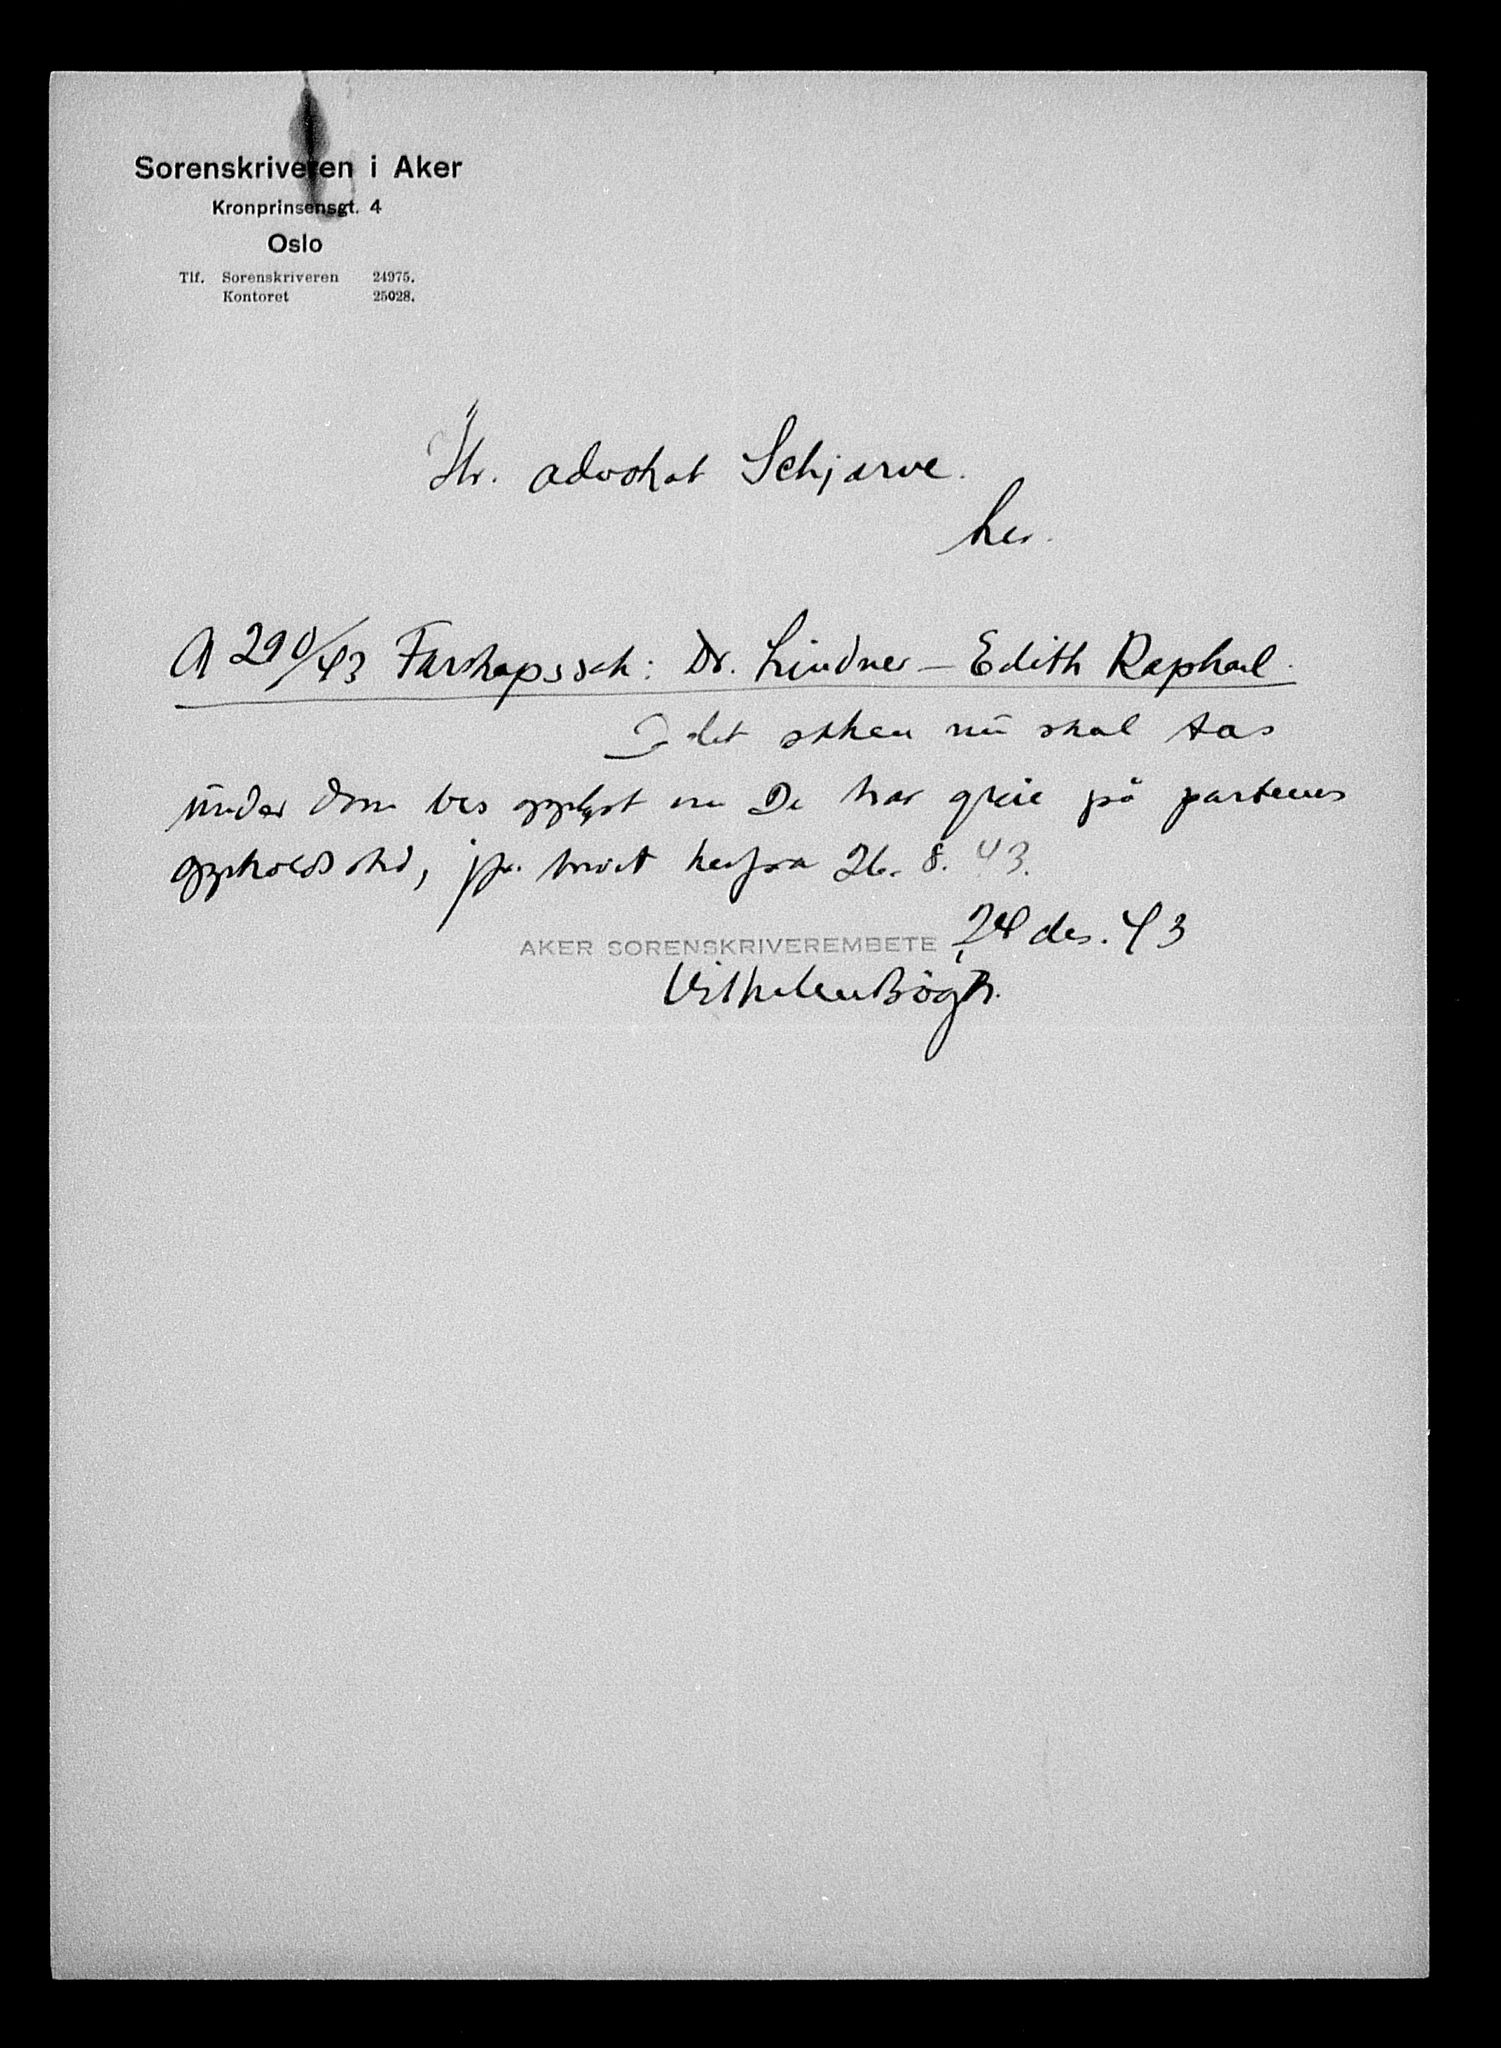 Sorenskriveren i Aker
Kronprinsensgt. 4
Oslo
Tlf. Sorenskriveren 24975.
Kontoret 25028.
Hr. advokat Schjarve.
her.
A 290/43 Farskapssak: Dr. Lindner – Edith Raphael.
I det saken nu skal tas
under dom bes opplyst om De har greie på partenes
oppholdssted, jfr. herfra 26. 8. 43.
AKER SORENSKRIVEREMBETE, 24 des. 43
Vilhelm Bögh.